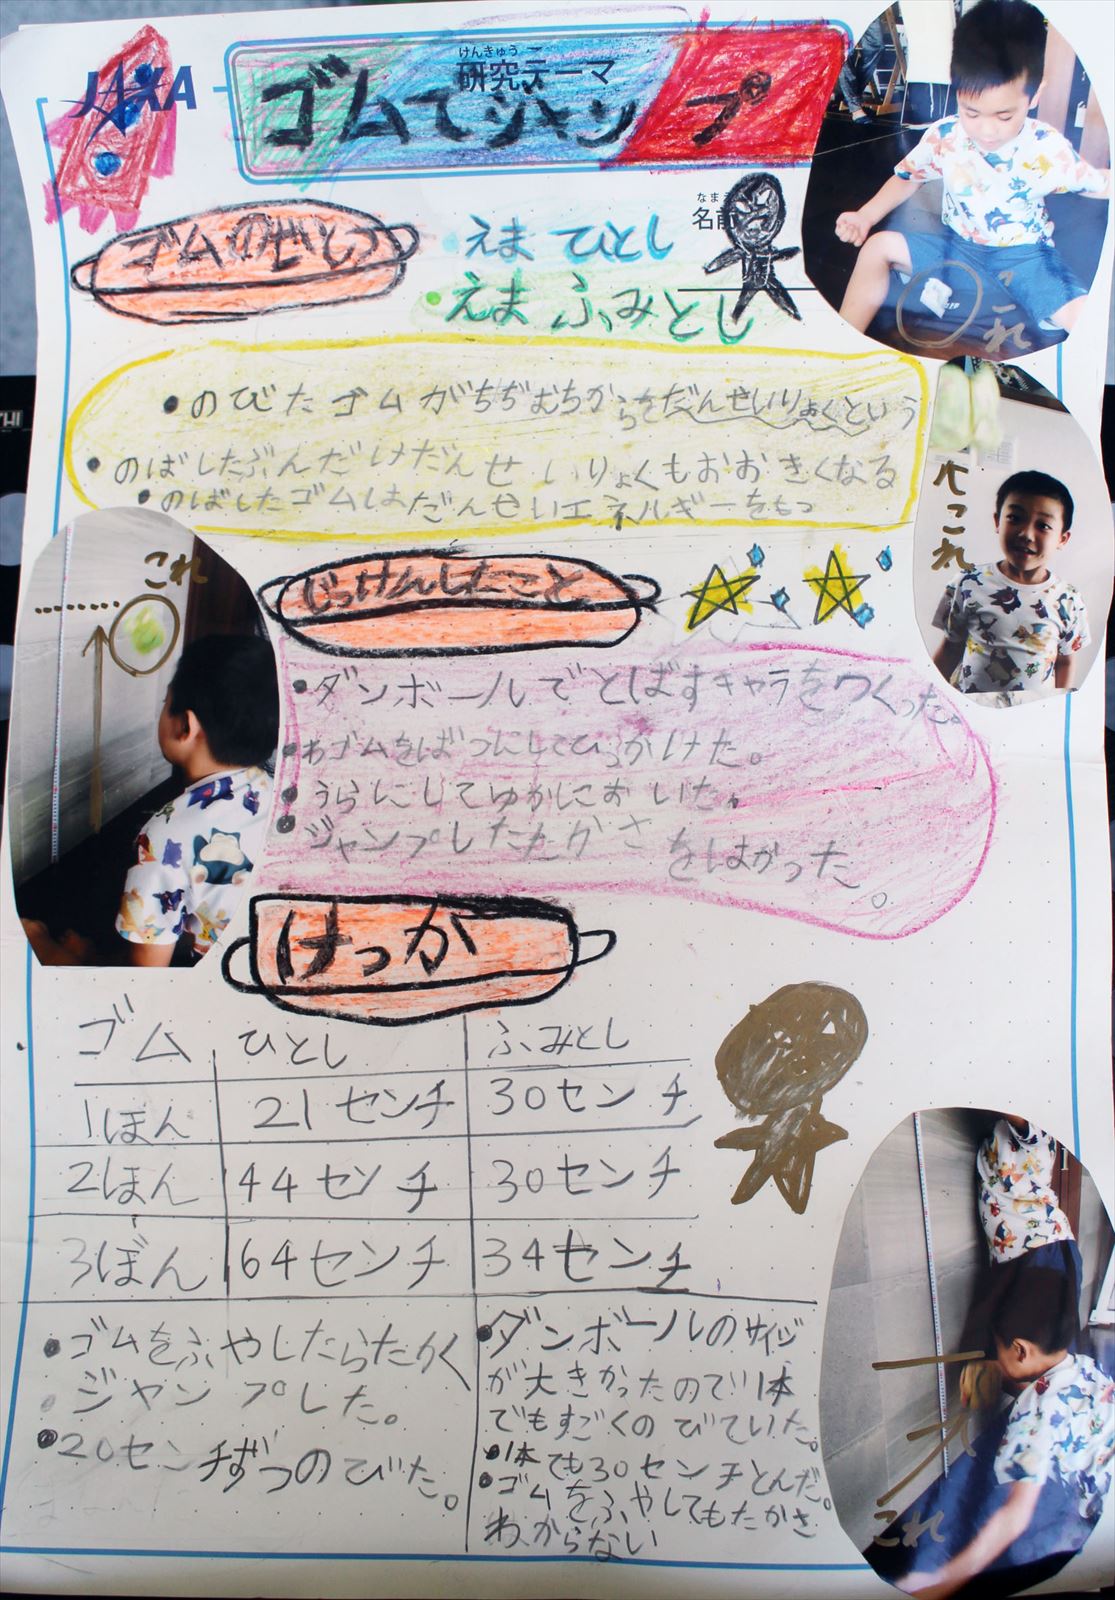 JAXA
けんきゅう
研究テーマ
ゴムでジャンプ
なまえ
名前
ゴムのせいしつ
・えま ひとし
・えま ふみとし
これ
・のびたゴムがちぢむちからをだんせいりょくという
・のばしたぶんだけだんせいりょくもおおきくなる
・のばしたゴムはだんせいエネルギーをもつ
これ
これ
じっけんしたこと
・ダンボールでとばすキャラをつくった。
・わゴムをばつにしてひっかけた。
・うらにしてゆかにおいた。
・ジャンプしたたかさをはかった。
けっか
ゴム ひとし ふみとし
1ほん 21センチ 30センチ
2ほん 44センチ 30センチ
3ぼん 64センチ 34センチ
・ゴムをふやしたらたかく
ジャンプした。
・20センチずつのびた。
・ダンボールのサイズ
が大きかったので1本
でもすごくのびていた。
・1本でも30センチとんだ。
・ゴムをふやしてもたかさ
わからない
これ